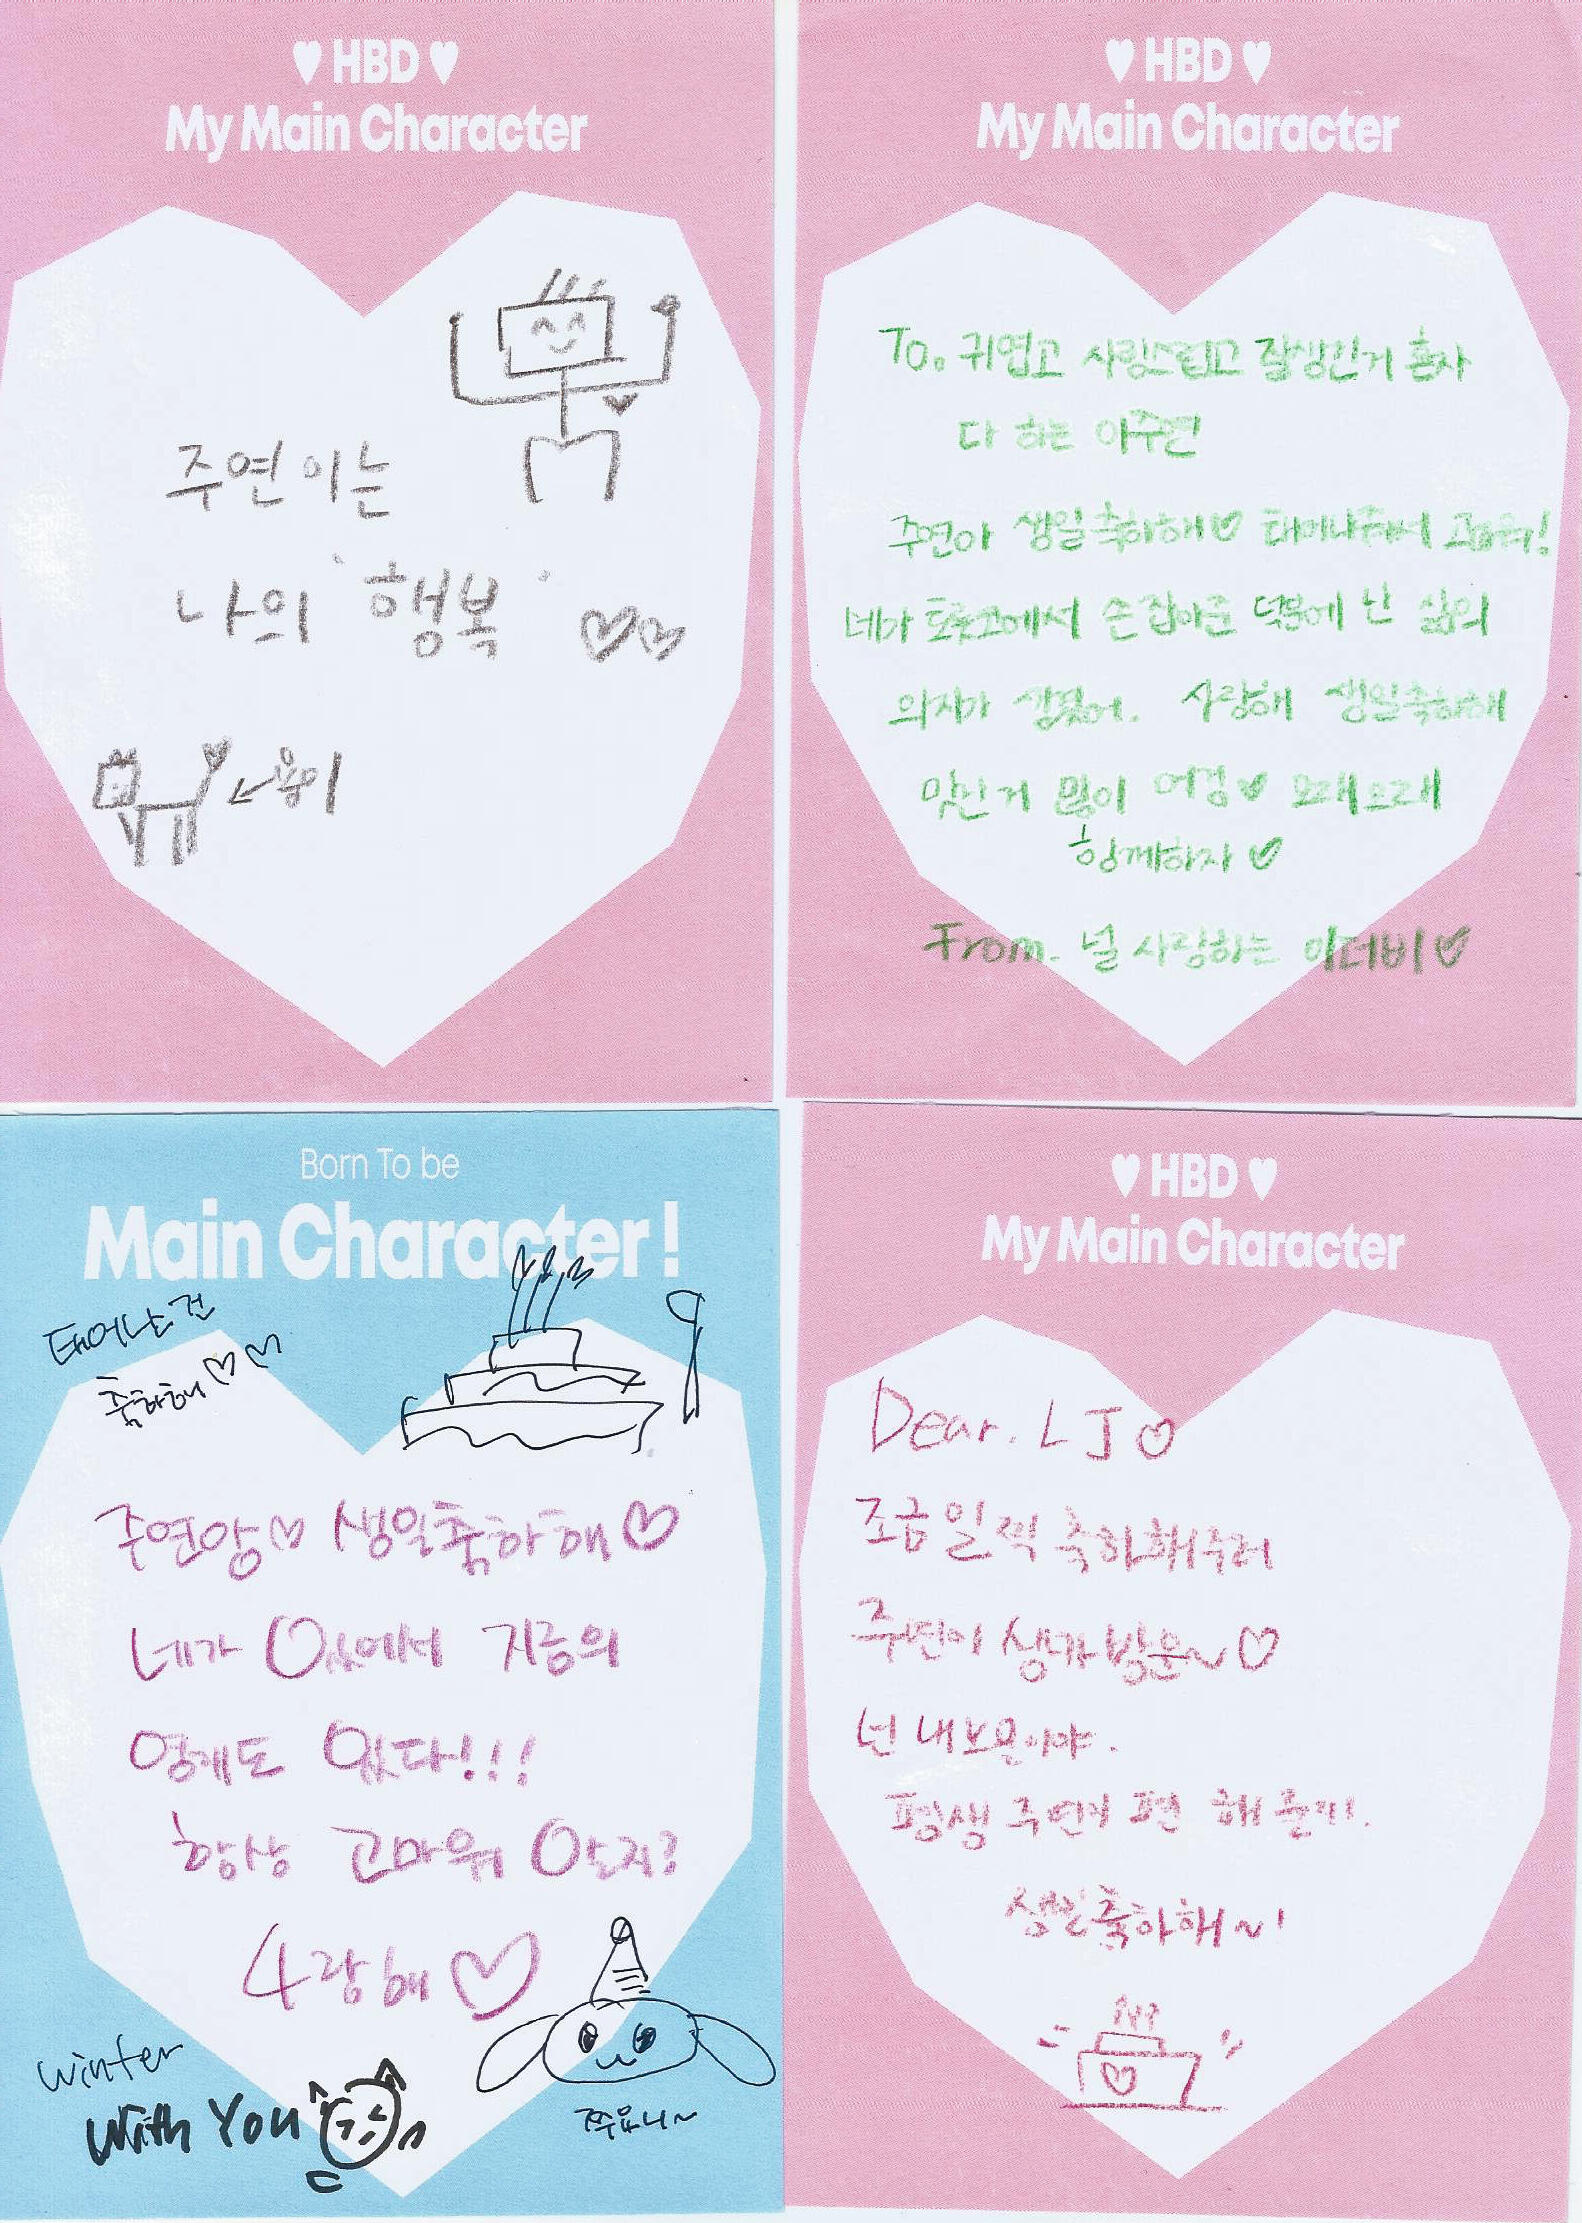 ♥ HBD ♥
My Main Character
주연이는
나의 '행복' ♡♡
←용이
♥ HBD ♥
My Main Character
To. 귀엽고 사랑스럽고 잘생긴거 혼자
다 하는 이주연
주연아 생일축하해♡ 태어나줘서 고마워!
네가 토루크에서 손잡아준 덕분에 난 삶의
의지가 생겼어. 사랑해 생일축하해
맛난거 많이 먹엉♥ 오래오래
함께하자♡
From. 널 사랑하는 이더비♡
Born To be
Main Character!
태어난건
축하해♡♡
주연앙♡ 생일축하해♡
네가 있어서 지금의
영계도 있다!!!
항상 고마워 알지?
4랑해♡
winter
With You
쭈요니~
♥ HBD ♥
My Main Character
Dear. LJ♡
조금 일찍 축하해주러
주연이 생카 방문~♡
넌 내 보문이야.
평생 주연이 편 해줄게!.
생일축하해~!